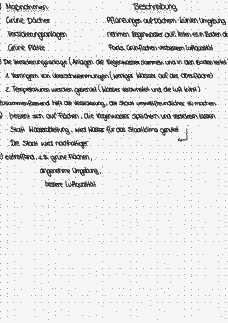 Maßnahmen Beschreibung
Grüne Dächer Pflanzungen auf Dächern kühlen Umgebung
Versickerungsanlagen nehmen Regenwasser auf, leiten es in Boden
Grüne Plätze Parks, Grünflächen verbessern Luftqualität
Die Versickerungsanlage (Anlagen die Regenwasser sammeln und in den Boden leiten)
1. Verringern von Überschwemmungen (weniger Wasser auf der Oberfläche)
2. Temperaturen werden gesenkt (Wasser verdunstet und die Luft kühlt)
Zusammenfassend hilft die Versickerung, die Stadt umweltfreundlicher zu machen.
bezieht sich auf Flächen, die Regenwasser speichern und versickern lassen
Stadt Wasserableitung, wird Wasser für das Stadtklima genutzt
Die Stadt wird nachhaltiger
z.B. grüne Flächen,
angenehme Umgebung,
bessere Luftqualität